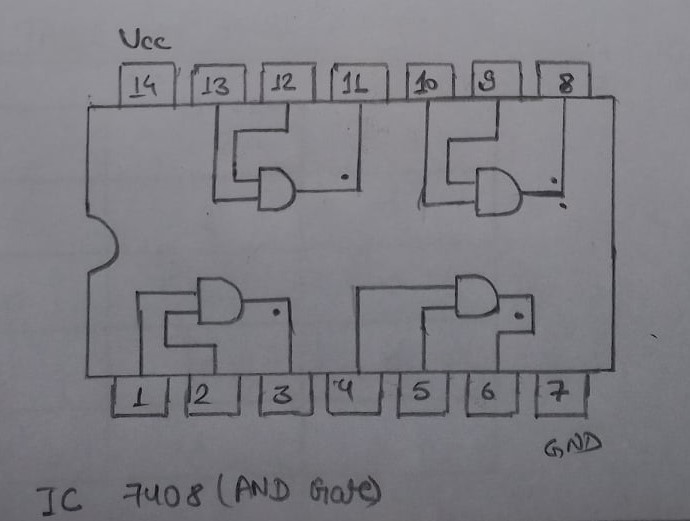 Vcc
14 13 12 11 10 9 8
1 2 3 4 5 6 7
GND
IC 7408 (AND Gate)